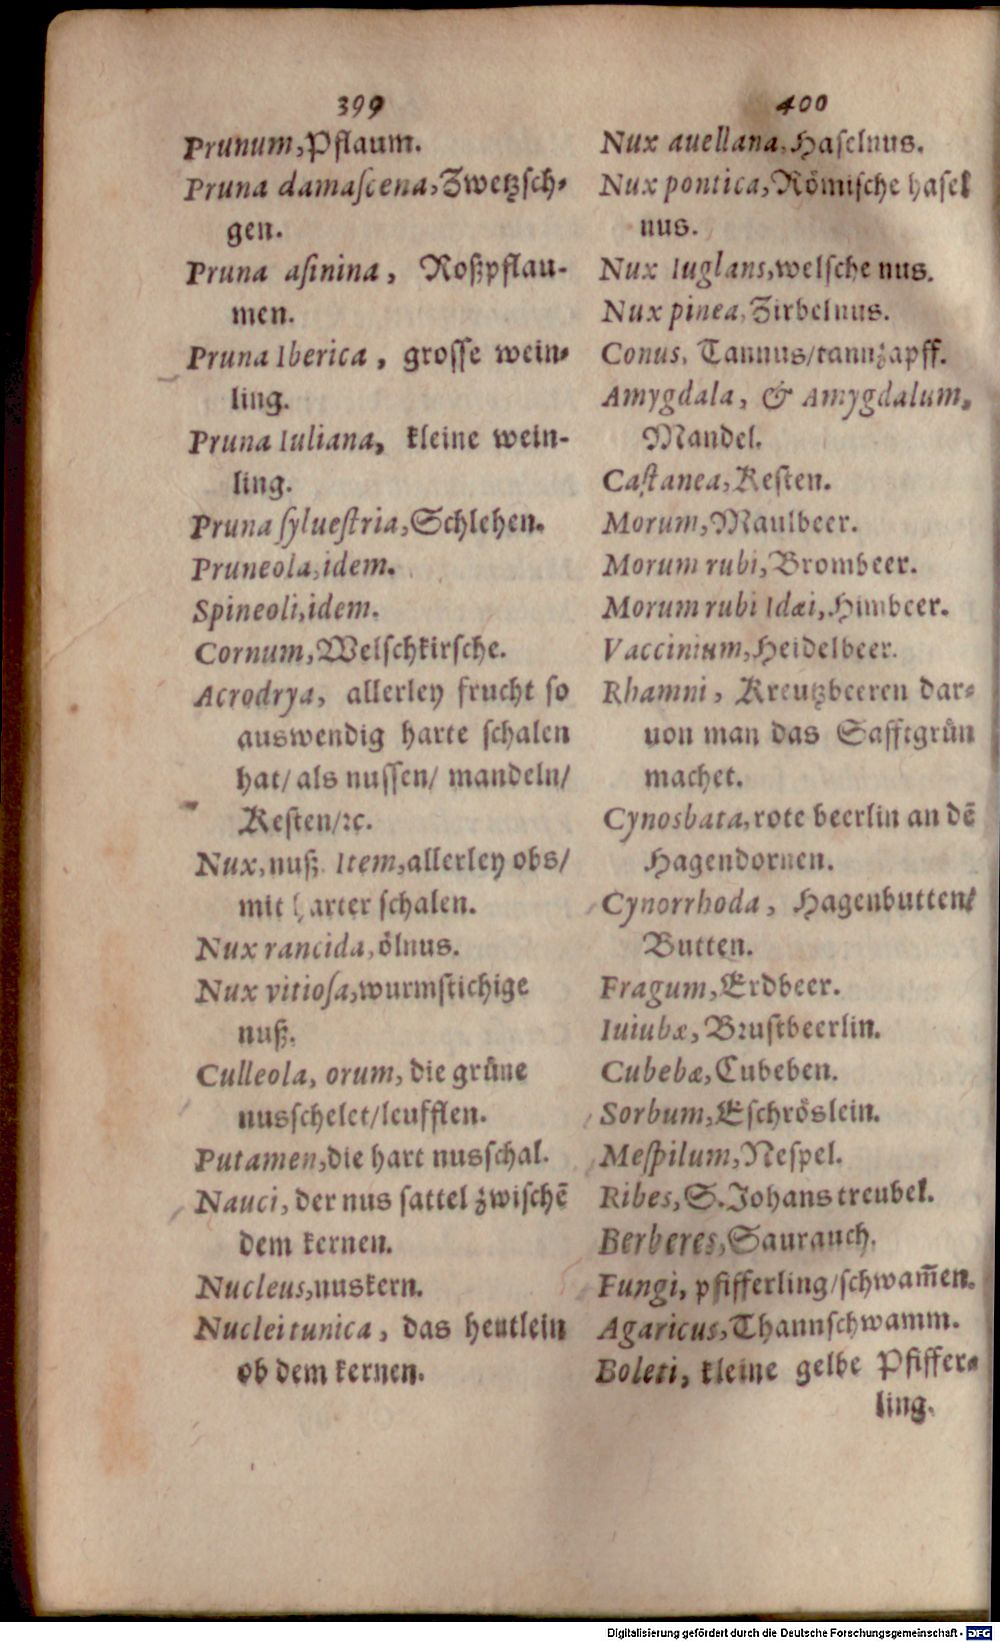 399
Prunum, Pflaum.
Pruna damaſcena, Zwetzſch-
gen.
Pruna aſinina, Roßpflau-
men.
Pruna Iberica, groſſe wein-
ling.
Pruna Iuliana, kleine wein-
ling.
Pruna ſylueſtria, Schlehen.
Pruneola, idem.
Spineoli, idem.
Cornum, Welſchkirſche.
Acrodrya, allerley frucht ſo
auswendig harte ſchalen
hat/ als nuſſen/ mandeln/
Keſten/ꝛc.
Nux, nuß. Item, allerley obs/
mit harter ſchalen.
Nux rancida, ölnus.
Nux vitioſa, wurmſtichige
nuß.
Culleola, orum, die grüne
nusſchelet/leufflen.
Putamen, die hart nusſchal.
Nauci, der nus ſattel zwiſchē
dem kernen.
Nucleus, nuskern.
Nuclei tunica, das heutlein
ob dem kernen.
400
Nux auellana, Haſelnus.
Nux pontica, Römiſche haſel
nus.
Nux Iuglans, welſche nus.
Nux pinea, Zirbelnus.
Conus, Tannus/tannzapff.
Amygdala, & Amygdalum,
Mandel.
Caſtanea, Keſten.
Morum, Maulbeer.
Morum rubi, Brombeer.
Morum rubi Idæi, Himbeer.
Vaccinium, Heidelbeer.
Rhamni, Kreutzbeeren dar-
uon man das Safftgrün
machet.
Cynosbata, rote beerlin an dē
Hagendornen.
Cynorrhoda, Hagenbutten/
Butten.
Fragum, Erdbeer.
Iuiubæ, Bruſtbeerlin.
Cubebæ, Cubeben.
Sorbum, Eſchröslein.
Meſpilum, Neſpel.
Ribes, S. Johans treubel.
Berberes, Saurauch.
Fungi, pfifferling/ſchwam̄en.
Agaricus, Thannſchwamm.
Boleti, kleine gelbe Pfiffer-
ling.
Digitalisierung gefördert durch die Deutsche Forschungsgemeinschaft - DFG